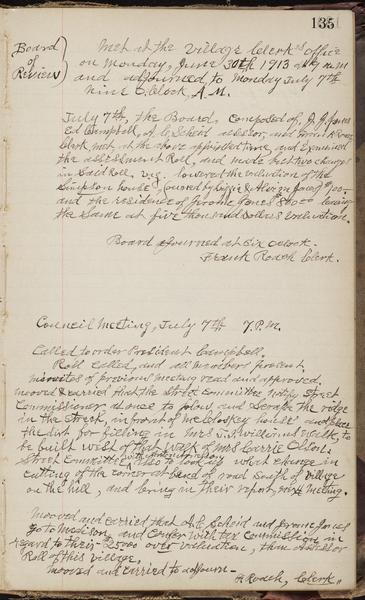 135
Board
of
Review
Met at the Village Clerk's Office
on Monday, June 30th 1913
and adjourned, to Monday July 7th
nine O'clock, A.M.
July 7th, the Board, Composed of,
Ed Campbell, A. C. Scheid and Frank Roach
Clerk met at the above appointed time, and Examined
the assessment Roll, and made but two changes
in Said Roll. viz. lowered the valuation of the
Simpson house
and the residence of Jerome Jones leaving
the same at five thousand dollars valuation.
Board adjourned at Six Oclock.
Frank Roach Clerk.
Council Meeting, July 7th 7 P.M.
Called to order President Campbell.
Roll Called, and all members present,
minutes of previous meeting read and approved.
mooved & carried that the Street Committee notify Street
Commissioner at once to plow, and Scrape the ridge
in the Street, in front of house and
the dirt for filling in Mrs J. J. Williams walk, to
be built west of that walk of Mrs Carrie Olson.
Street Committee also to look up what change in
cutting of the corner at bend of road South of village
on the hill, and bring in their report, next Meeting.
Mooved and carried that A. C. Scheid and Jerome Jones
go to Madison, and Confer with Tax Commission in
regard to their 25000 over valuation, than assessor
Roll of this village.
mooved and carried to adjourn -
F. Roach, Clerk